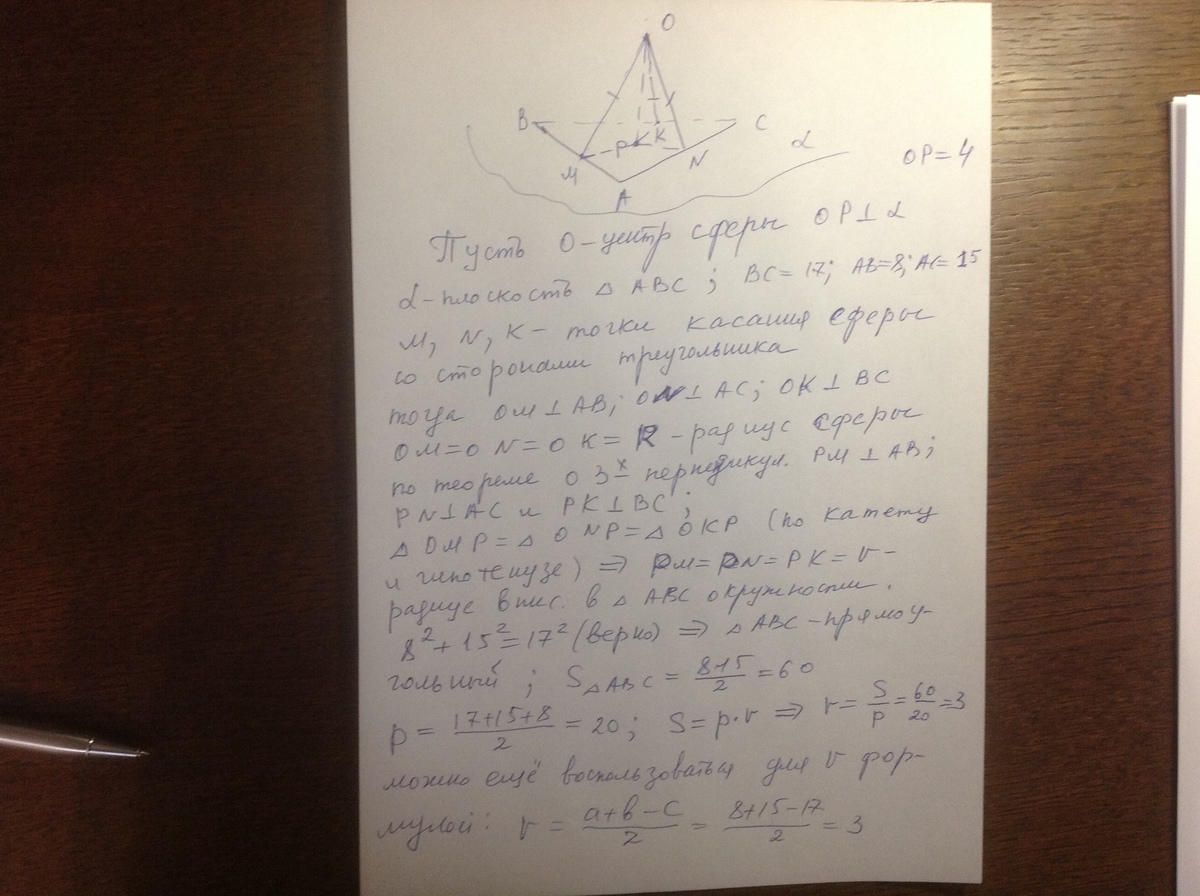 O
B
C
P
K
M
N
α
A
OP=4
Пусть O-центр сферы OP⊥α
α-плоскость △ABC; BC=17; AB=8; AC=15
M, N, K - точки касания сферы
со сторонами треугольника
тогда OM⊥AB; ON⊥AC; OK⊥BC
OM=ON=OK=R-радиус сферы
по теореме о 3х перпендикул. PM⊥AB;
PN⊥AC и PK⊥BC;
△OMP=△ONP=△OKP (по катету
и гипотенузе) ⇒ PM=PN=PK=r-
радиус впис. в △ABC окружности.
8²+15²=17² (верно) ⇒ △ABC-прямоу-
гольный; S△ABC = 8·15/2 = 60
p = (17+15+8)/2 = 20; S=p·r ⇒ r = S/p = 60/20 = 3
можно ещё воспользоваться для r фор-
мулой: r = (a+b-c)/2 = (8+15-17)/2 = 3